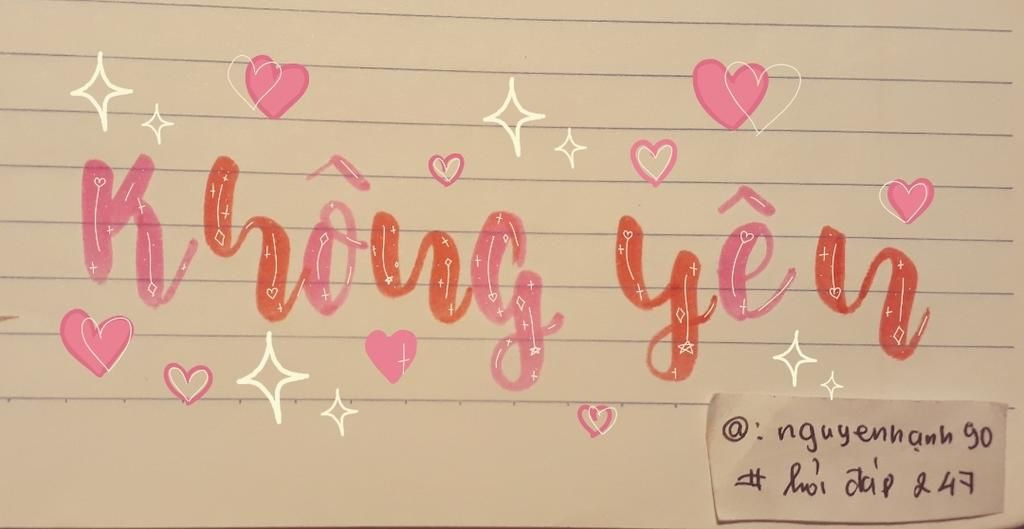 Không yên
@: nguyenhạnh 90
# hỏi đáp 247